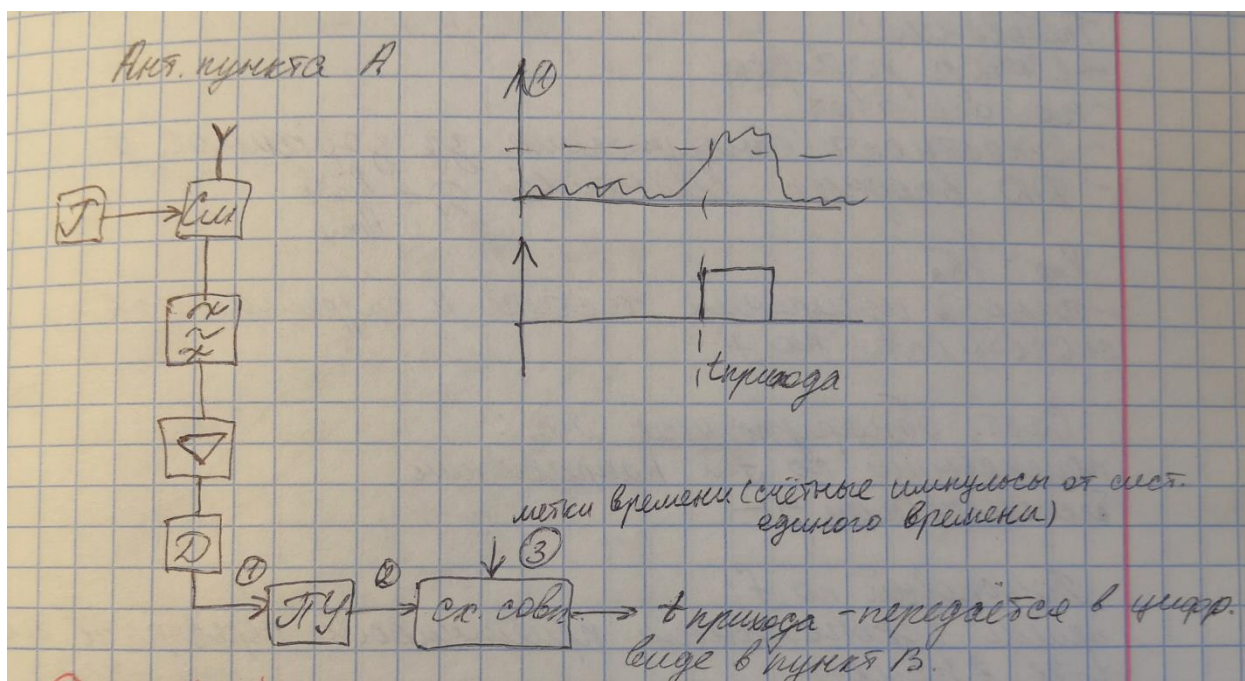 Ант. пункта А
①
Г
См
Д
①
ПУ
②
сх. совп.
метки времени (счётные импульсы от сист.
единого времени)
③
t прихода
t прихода - передаётся в цифр.
виде в пункт В.